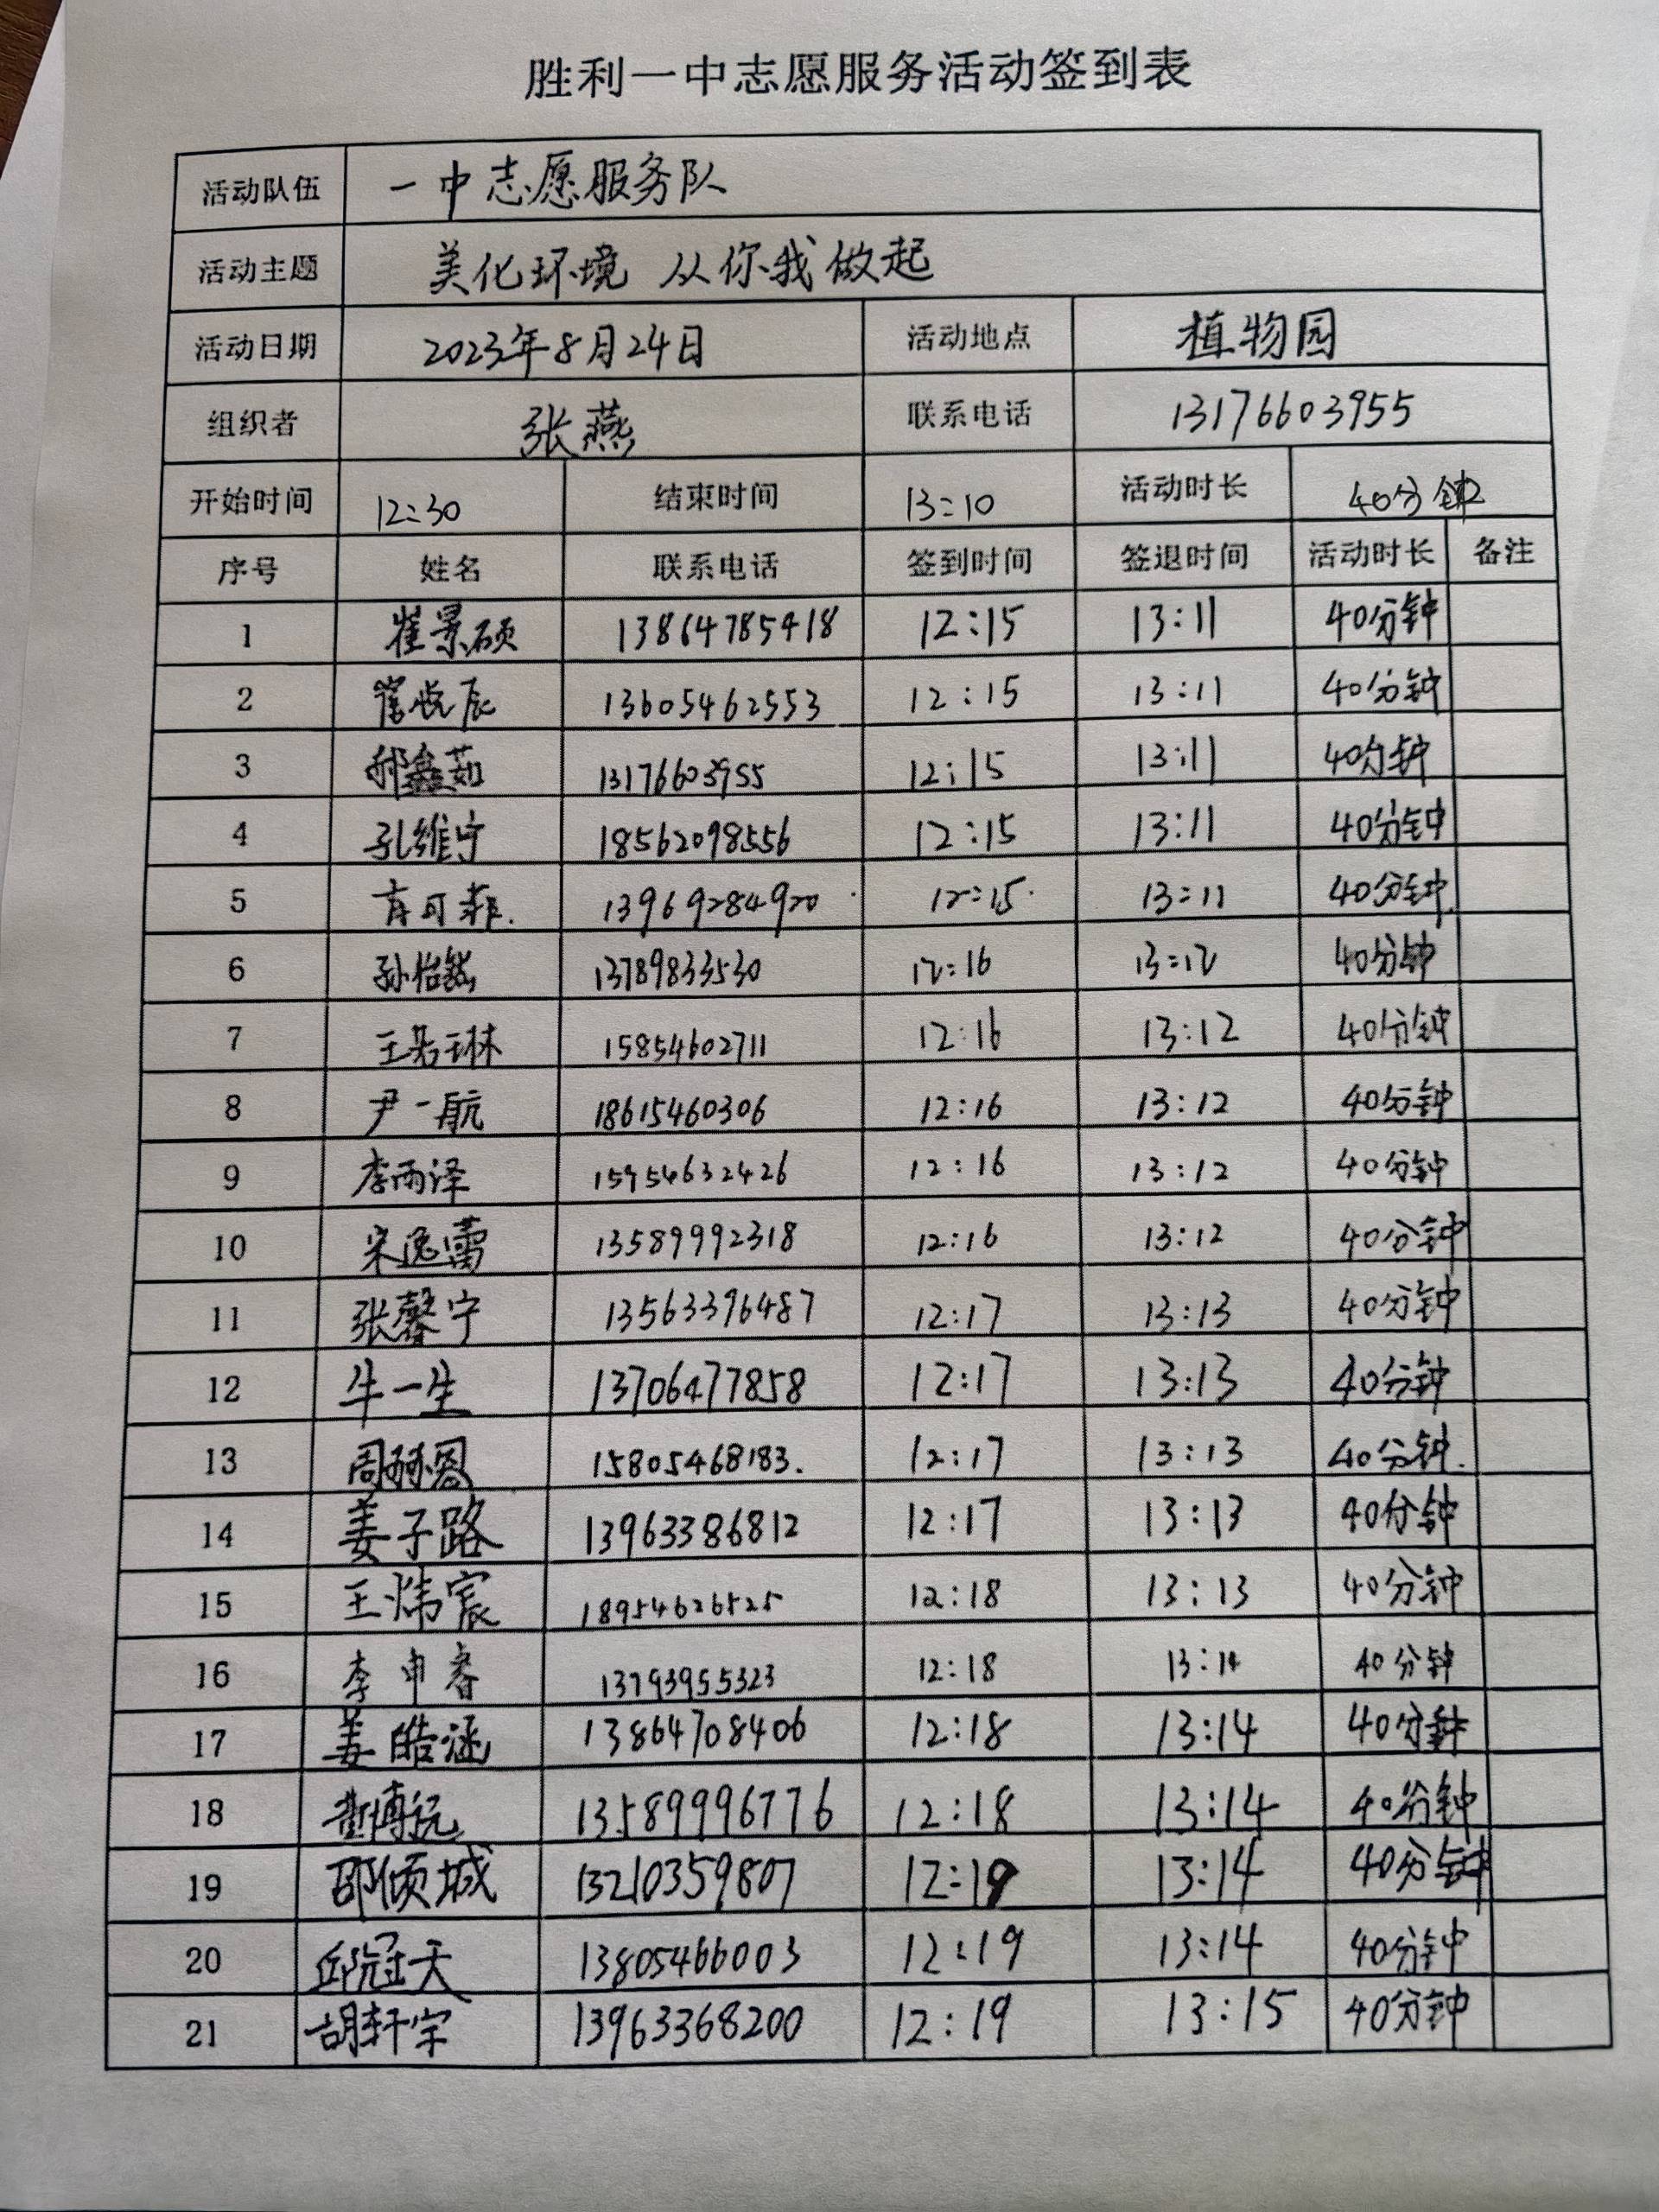 胜利一中志愿服务活动签到表
活动队伍 一中志愿服务队
活动主题 美化环境 从你我做起
活动日期 2023年8月24日 活动地点 植物园
组织者 张燕 联系电话 13176603955
开始时间 12:30 结束时间 13:10 活动时长 40分钟
序号 姓名 联系电话 签到时间 签退时间 活动时长 备注
1 崔景硕 13864785418 12:15 13:11 40分钟
2 崔悦辰 13605462553 12:15 13:11 40分钟
3 郝鑫茹 13176603955 12:15 13:11 40分钟
4 孔维宁 18562098556 12:15 13:11 40分钟
5 可菲. 13969284920 12:15 13:11 40分钟.
6 孙怡然 13789833530 12:16 13:12 40分钟
7 王若琳 15854602711 12:16 13:12 40分钟
8 尹一航 18615460306 12:16 13:12 40分钟
9 李雨泽 15954632426 12:16 13:12 40分钟
10 宋逸蕾 13589992318 12:16 13:12 40分钟
11 张馨宁 13563396487 12:17 13:13 40分钟
12 牛一生 13706477858 12:17 13:13 40分钟
13 周 15805468183. 12:17 13:13 40分钟.
14 姜子路 13963386812 12:17 13:13 40分钟
15 王炜宸 18954626525 12:18 13:13 40分钟
16 李申睿 13793955323 12:18 13:14 40分钟
17 姜皓涵 13864708406 12:18 13:14 40分钟
18 博远 13589996776 12:18 13:14 40分钟
19 邵倾城 13210359807 12:19 13:14 40分钟
20 邱冠天 13805466003 12:19 13:14 40分钟
21 胡轩宇 13963368200 12:19 13:15 40分钟